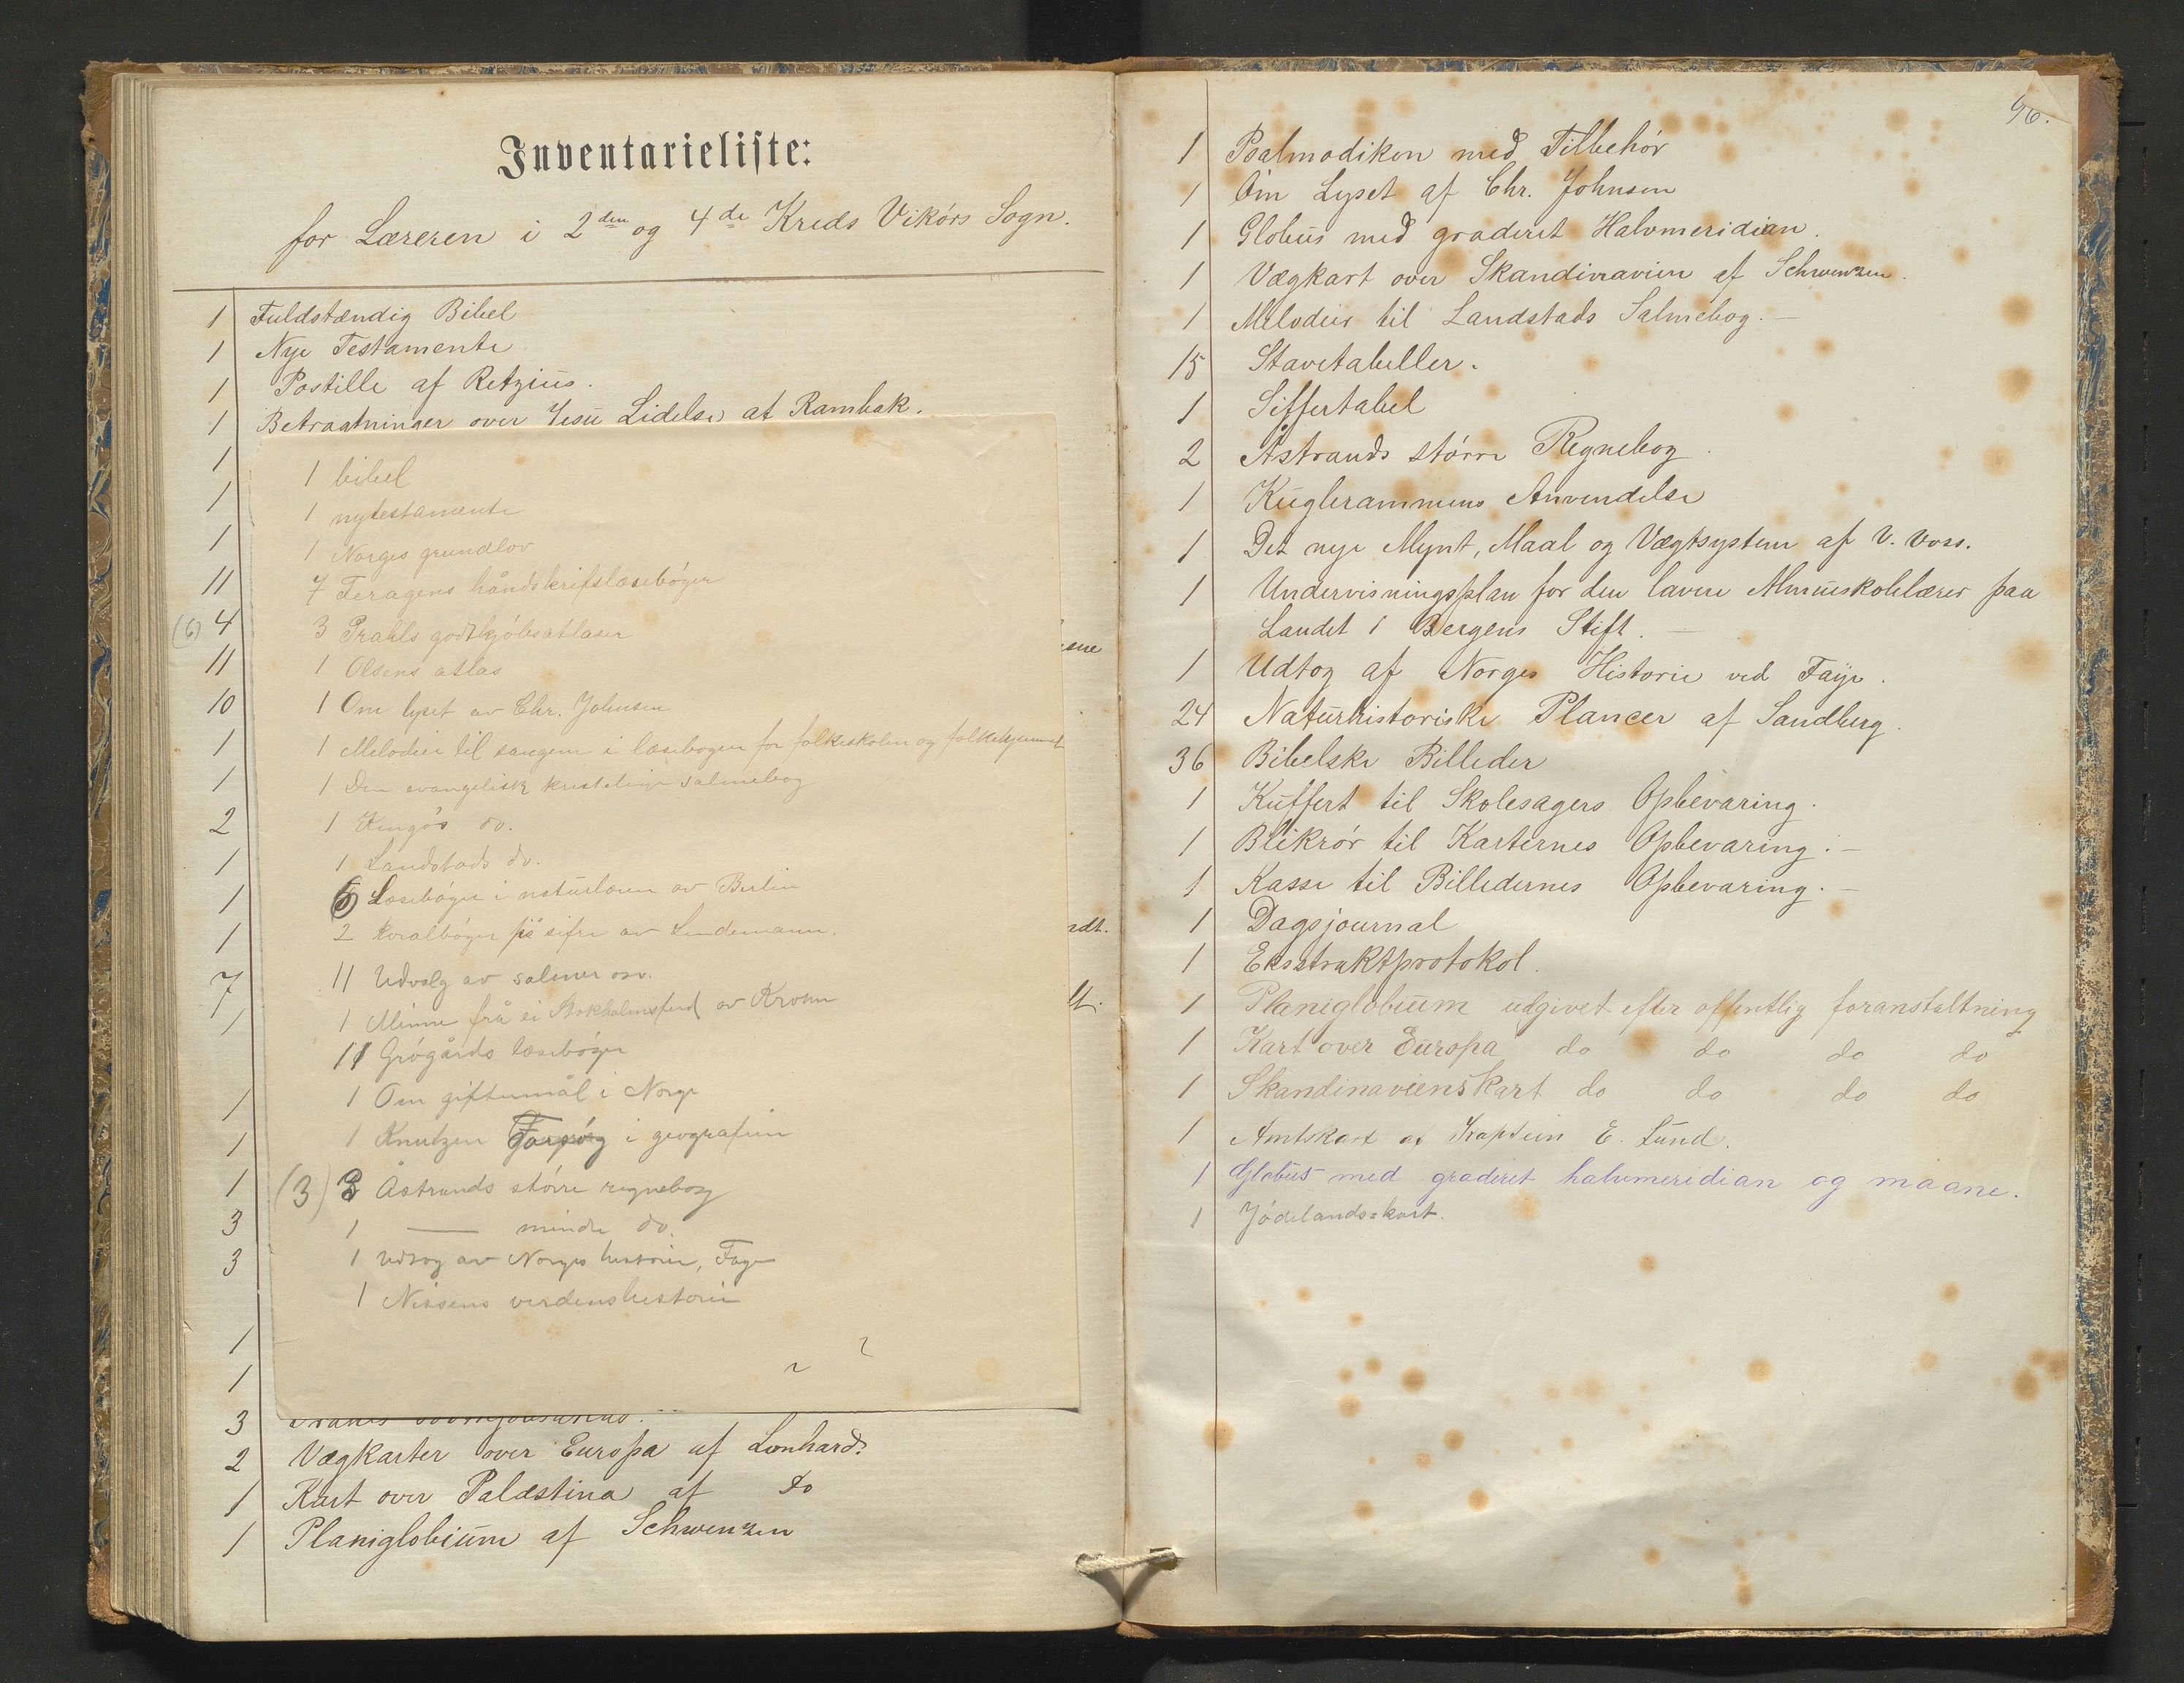 Inventarieliste:
for Læreren i 2den og 4de Kreds Vikørs Sogn.
1 Fuldstændig Bibel
1 Nye Testamente
1 Postille af Retzius.
1 Betragtninger over Jesu Lidelse af Rambak.
1
1
1
11
(6) 4
11
10
1
1
2
1
1
1
7
1
1
1
1
3
3
1
1
3
2 Vægkarter over Europa af Lonhard.
1 Kart over Palæstina af do
1 Planiglobium af Schwenzen
1 bibel
1 nytestamente
1 Norges grundlov
7 Feragens håndskriftslæsebøger
3 Prahls godtkjøbsatlaser
1 Olsens atlas
1 Om lyset av Chr. Johnsen
1 Melodier til sangene i læsebogen for folkeskolen og folkehjemmet
1 Den evangelisk kristelige salmebog
1 Kingo's do.
1 Landstads do.
6 Læsebøger i naturlæren av Berlin
2 Koralbøger på sifre av Lindemann.
11 Udvalg av salmer osv.
1 Minne frå ei Stokholmsferd av Krohn
11 Grøgårds læsebøger
1 Om giftermål i Norge
1 Knutzen Forsøg i geografien
(3) 3 Åstrands større regnebog
1 — mindre do.
1 Udtog av Norges historie, Faye
1 Nissens verdenshistorie
sne
ndt.
ft.
96.
1 Psalmodikon med Tilbehør
1 Om Lyset af Chr. Johnsen
1 Globus med graderet Halvmeridian.
1 Vægkart over Skandinavien af Schwenzen.
1 Melodier til Landstads Salmebog. —
15 Stavetabeller.
1 Siffertabel
2 Åstrands større Regnebog.
1 Kuglerammens Anvendelse
1 Det nye Mynt, Maal og Vægtsystem af V. Voss.
1 Undervisningsplan for den lavere Almueskolelærer paa
Landet i Bergens Stift. —
1 Udtog af Norges Historie ved Faye.
24 Naturhistoriske Plancer af Sandberg.
36 Bibelske Billeder
1 Kuffert til Skolesagers Opbevaring.
1 Blikrør til Karternes Opbevaring. —
1 Kasse til Billedernes Opbevaring. —
1 Dagsjournal
1 Eksstraktprotokol.
1 Planiglobium udgivet efter offentlig foranstaltning
1 Kart over Europa do do do do
1 Skandinaviens Kart do do do do
1 Amtskart af Kaptein E. Lund.
1 Globus med graderet halvmeridian og maane.
1 Jødelands=kart.